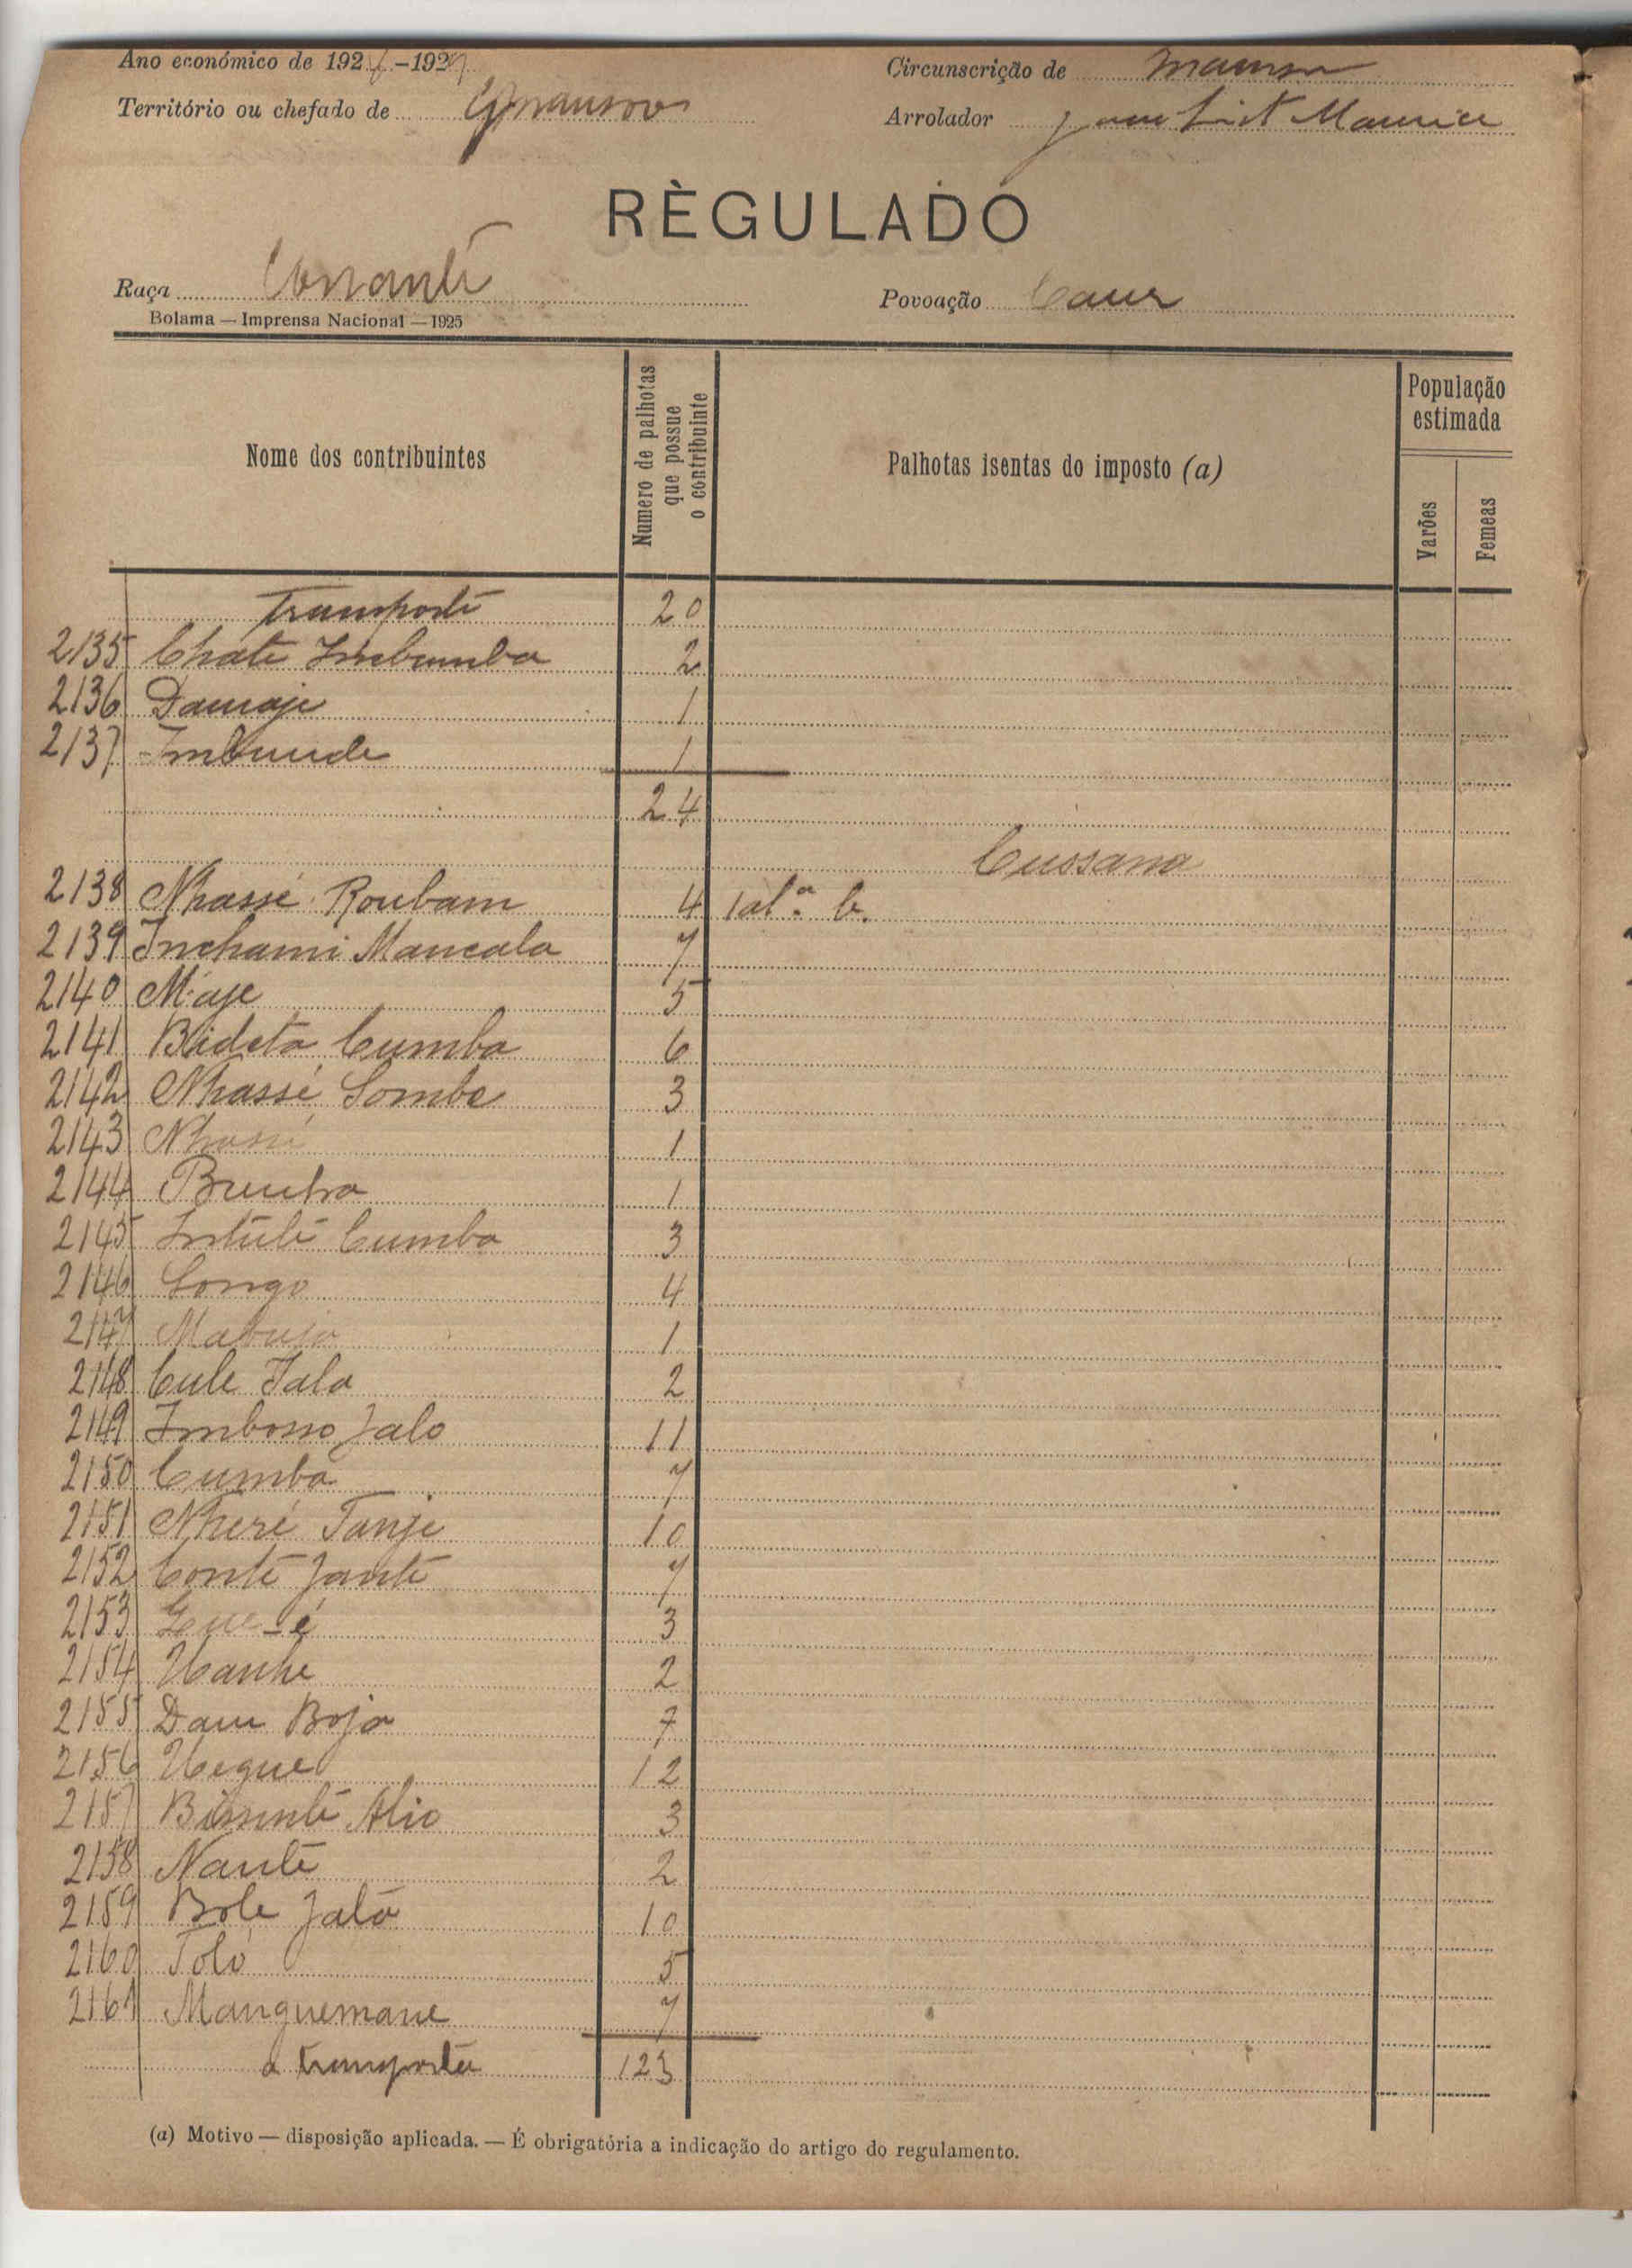 Ano económico de 192 -192
Circunscrição de
Território ou chefado de
Arrolador
RÈGULADO
Raça
Povoação Caur
Bolama — Imprensa Nacional — 1925
Nome dos contribuintes
Numero de palhotas que possue o contribuinte
Palhotas isentas do imposto (a)
População estimada
Varões
Femeas
Transporte 20
2135 Chate Imbumba 2
2136 Damaje 1
2137 Imbunde 1
24
Cussana
2138 Nhassé Roubam 4 1 al.ª b.
2139 Inchami Mancala 7
2140 Maje 5
2141 Bideta Cumba 6
2142 Nhassé Sombe 3
2143 Nhassé 1
2144 1
2145 Cumba 3
2146 Songo 4
2147 1
2148 Cule Jala 2
2149 Imbosso Jalo 11
2150 Cumba 7
2151 Nheré Tanje 10
2152 Conté Janté 7
2153 3
2154 Uanhe 2
2155 Dam Boja 7
2156 Uegue 12
2157 Alio 3
2158 Nanté 2
2159 Bole Jaló 10
2160 Toló 5
2161 Manguemane 7
a transportar 123
(a) Motivo — disposição aplicada. — É obrigatória a indicação do artigo do regulamento.